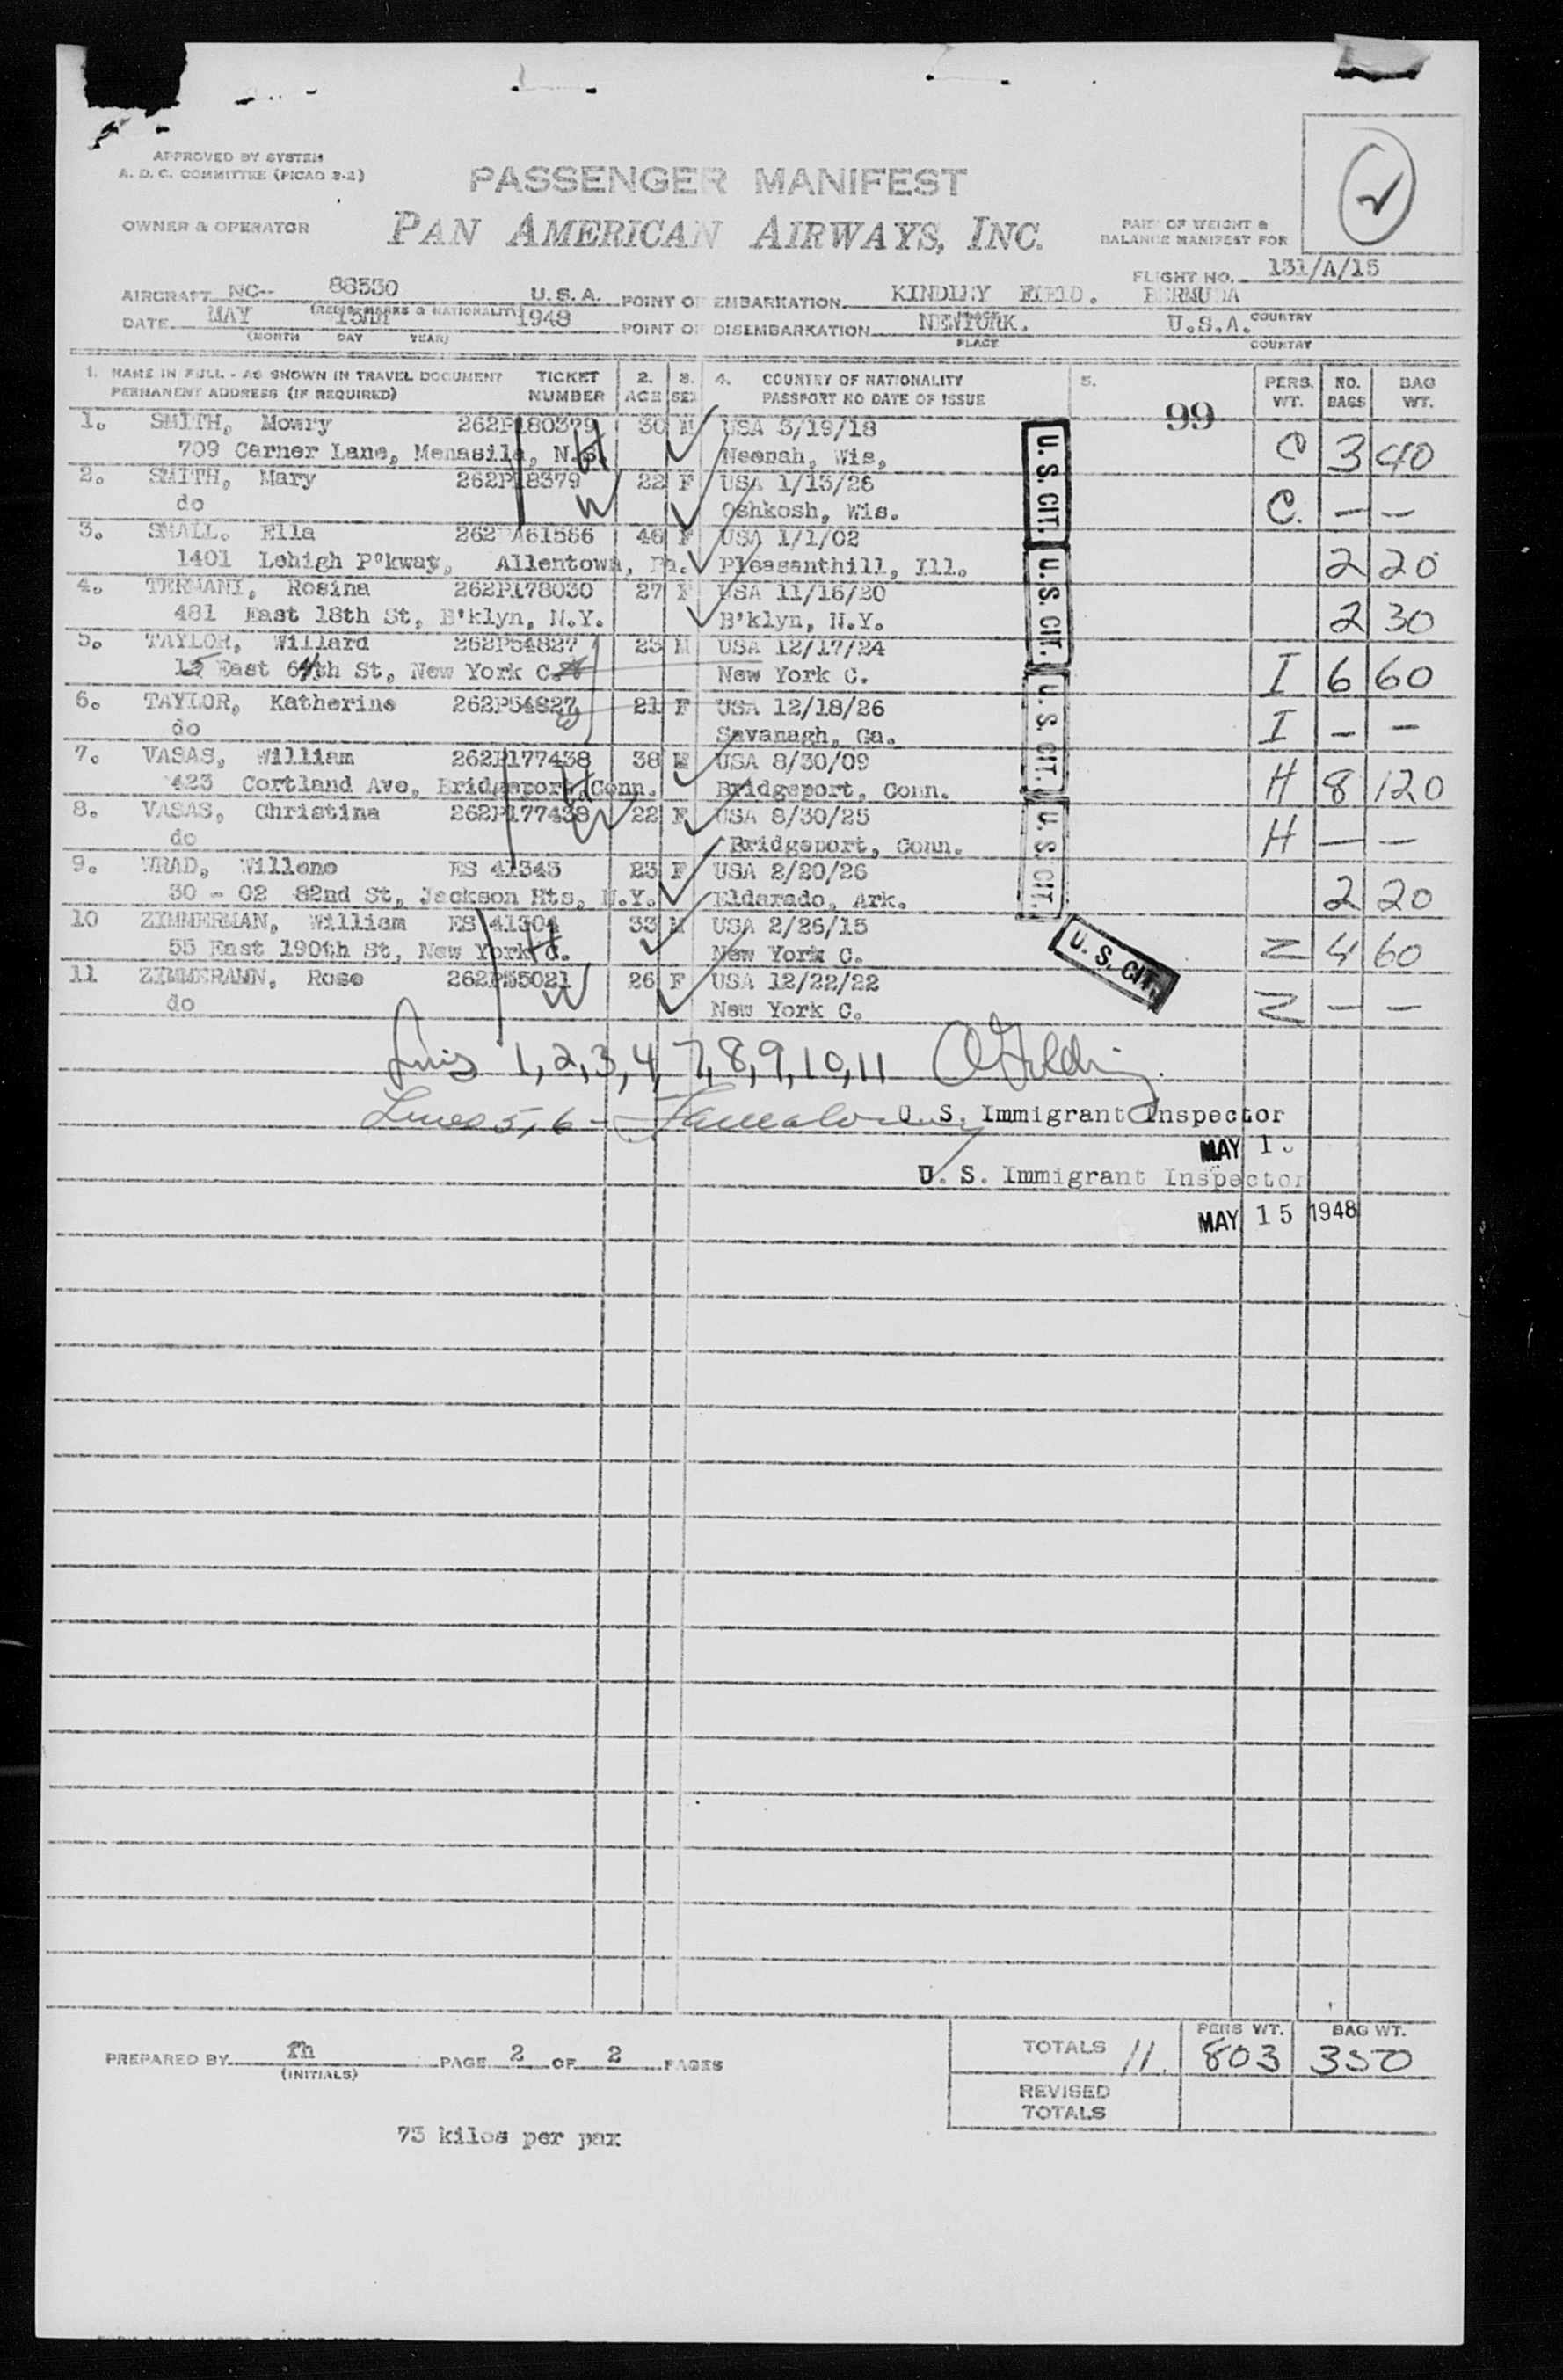 APPROVED BY SYSTEM
A. D. C. COMMITTEE (PICAO 2-2)
PASSENGER MANIFEST
OWNER & OPERATOR PAN AMERICAN AIRWAYS, INC. PART OF WEIGHT &
BALANCE MANIFEST FOR
FLIGHT NO. 131/A/15
AIRCRAFT NC-- 88530 U.S.A. POINT OF EMBARKATION KINDLEY FIELD. BERMUDA
(REGIS. MARKS & NATIONALITY) PLACE COUNTRY
DATE MAY 15TH 1948 POINT OF DISEMBARKATION NEWYORK. U.S.A.
(MONTH DAY YEAR) PLACE COUNTRY
1. NAME IN FULL - AS SHOWN IN TRAVEL DOCUMENT TICKET 2. 3. 4. COUNTRY OF NATIONALITY 5. PERS. NO. BAG
PERMANENT ADDRESS (IF REQUIRED) NUMBER AGE SEX PASSPORT NO DATE OF ISSUE WT. BAGS WT.
99
1. SMITH, Mowry 262P180379 30 M USA 3/19/18
709 Carner Lane, Menasila, H Neenah, Wis, C 3 40
2. SMITH, Mary 262P18379 22 F USA 1/13/26
do W Oshkosh, Wis. C. — —
3. SMALL. Ella 262PA61566 46 F USA 1/1/02
1401 Lehigh P'kway, Allentown, Pa. Pleasanthill, Ill. 2 20
4. TERMANI, Rosina 262P178030 27 F USA 11/16/20
481 East 18th St, B'klyn, N.Y. B'klyn, N.Y. 2 30
5. TAYLOR, Willard 262P54827 23 M USA 12/17/24
15 East 64th St, New York C. New York C. I 6 60
6. TAYLOR, Katherine 262P54827 21 F USA 12/18/26
do W Savanagh, Ga. I — —
7. VASAS, William 262P177438 38 M USA 8/30/09
423 Cortland Ave, Bridgeport, Conn. H Bridgeport, Conn. H 8 120
8. VASAS, Christina 262P177438 22 F USA 8/30/25
do W Bridgeport, Conn. H — —
9. WRAD, Willene ES 41343 23 F USA 2/20/26
30 - 02 82nd St, Jackson Hts, N.Y. Eldarado, Ark. 2 20
10 ZIMMERMAN, William ES 41304 33 M USA 2/26/15
55 East 190th St, New York C. H New York C. Z 4 60
11 ZIMMERAMN, Rose 262P55021 26 F USA 12/22/22
do W New York C. Z — —
U. S. CIT.
U. S. CIT.
U. S. CIT.
U. S. CIT.
U. S. CIT.
1,2,3,4,7,8,9,10,11
Lines 5, 6 - U. S. Immigrant Inspector
MAY 1
U. S. Immigrant Inspector
MAY 15 1948
PREPARED BY rh PAGE 2 OF 2 PAGES
(INITIALS)
PERS WT. BAG WT.
TOTALS 11. 803 350
REVISED
TOTALS
73 kilos per pax